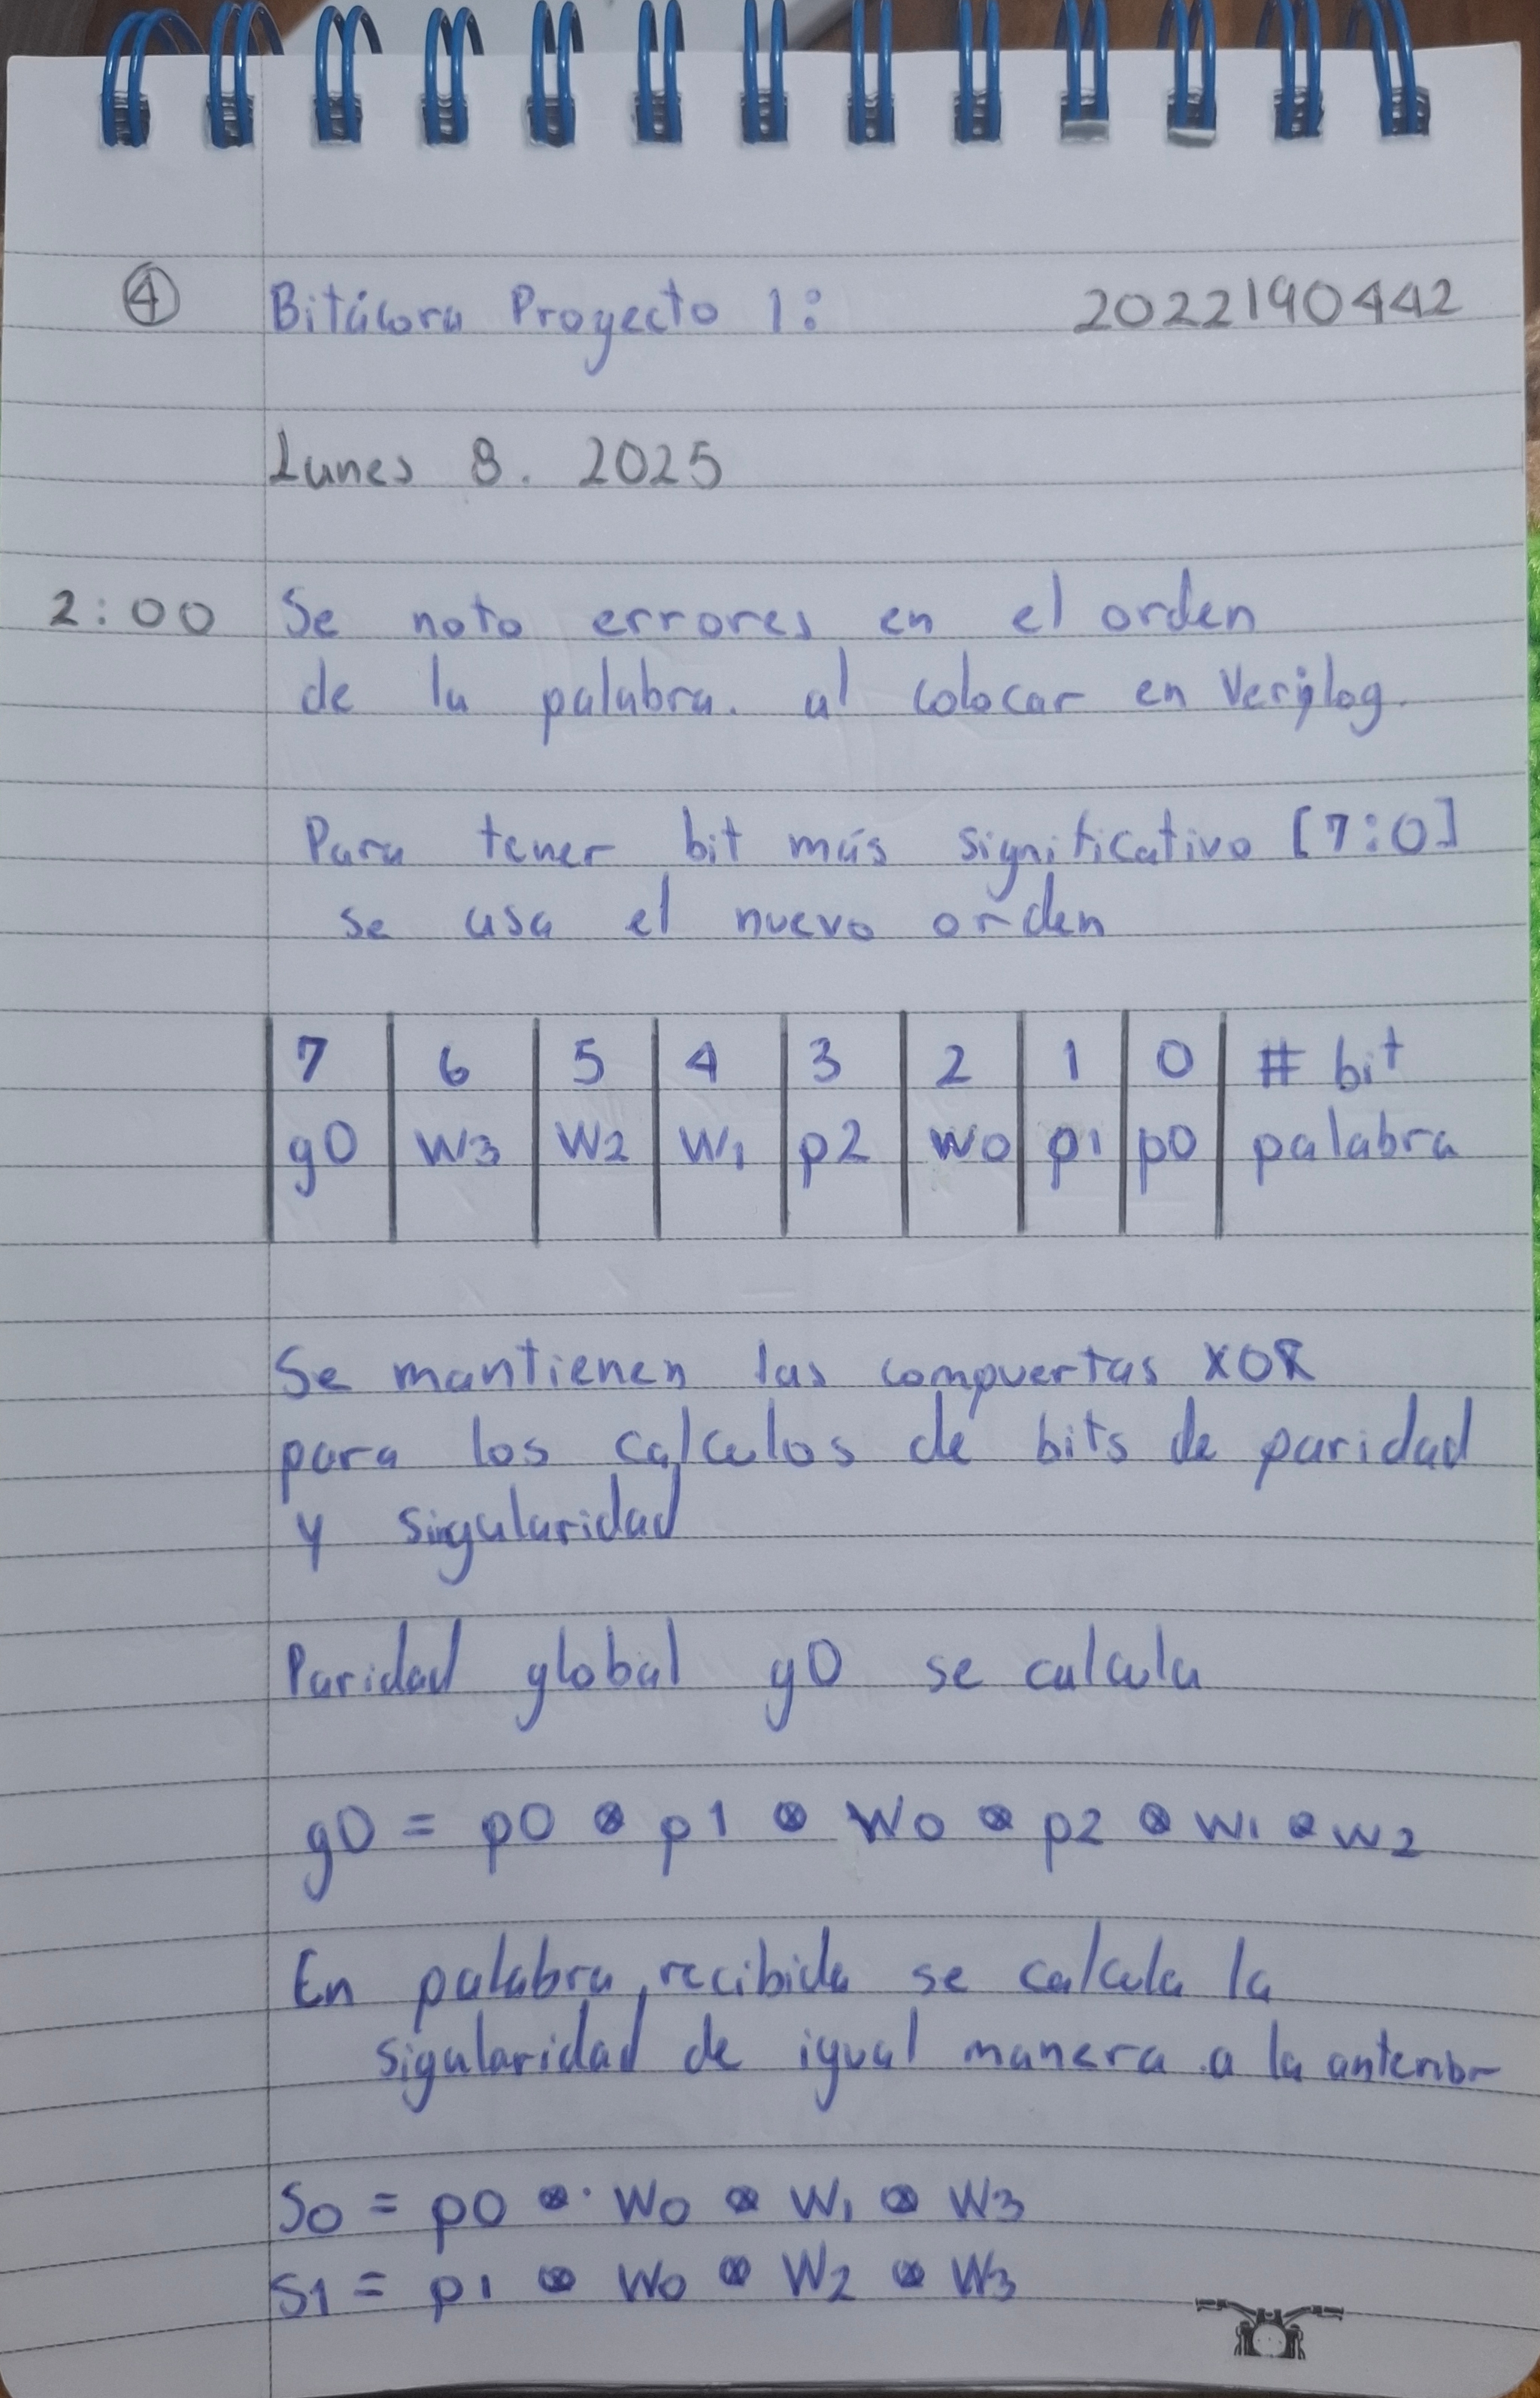 ④ Bitácora Proyecto 1: 2022190442
Lunes 8. 2025
2:00 Se noto errores en el orden
de la palabra. al colocar en Verilog.
Para tener bit más significativo [7:0]
se usa el nuevo orden
7 6 5 4 3 2 1 0 # bit
g0 W3 W2 W1 p2 W0 p1 p0 palabra
Se mantienen las compuertas XOR
para los calculos de bits de paridad
y sigularidad
Paridad global g0 se calcula
g0 = p0 ⊗ p1 ⊗ W0 ⊗ p2 ⊗ W1 ⊗ W2
En palabra recibida se calcula la
sigularidad de igual manera a la anterior
S0 = p0 ⊗ W0 ⊗ W1 ⊗ W3
S1 = p1 ⊗ W0 ⊗ W2 ⊗ W3